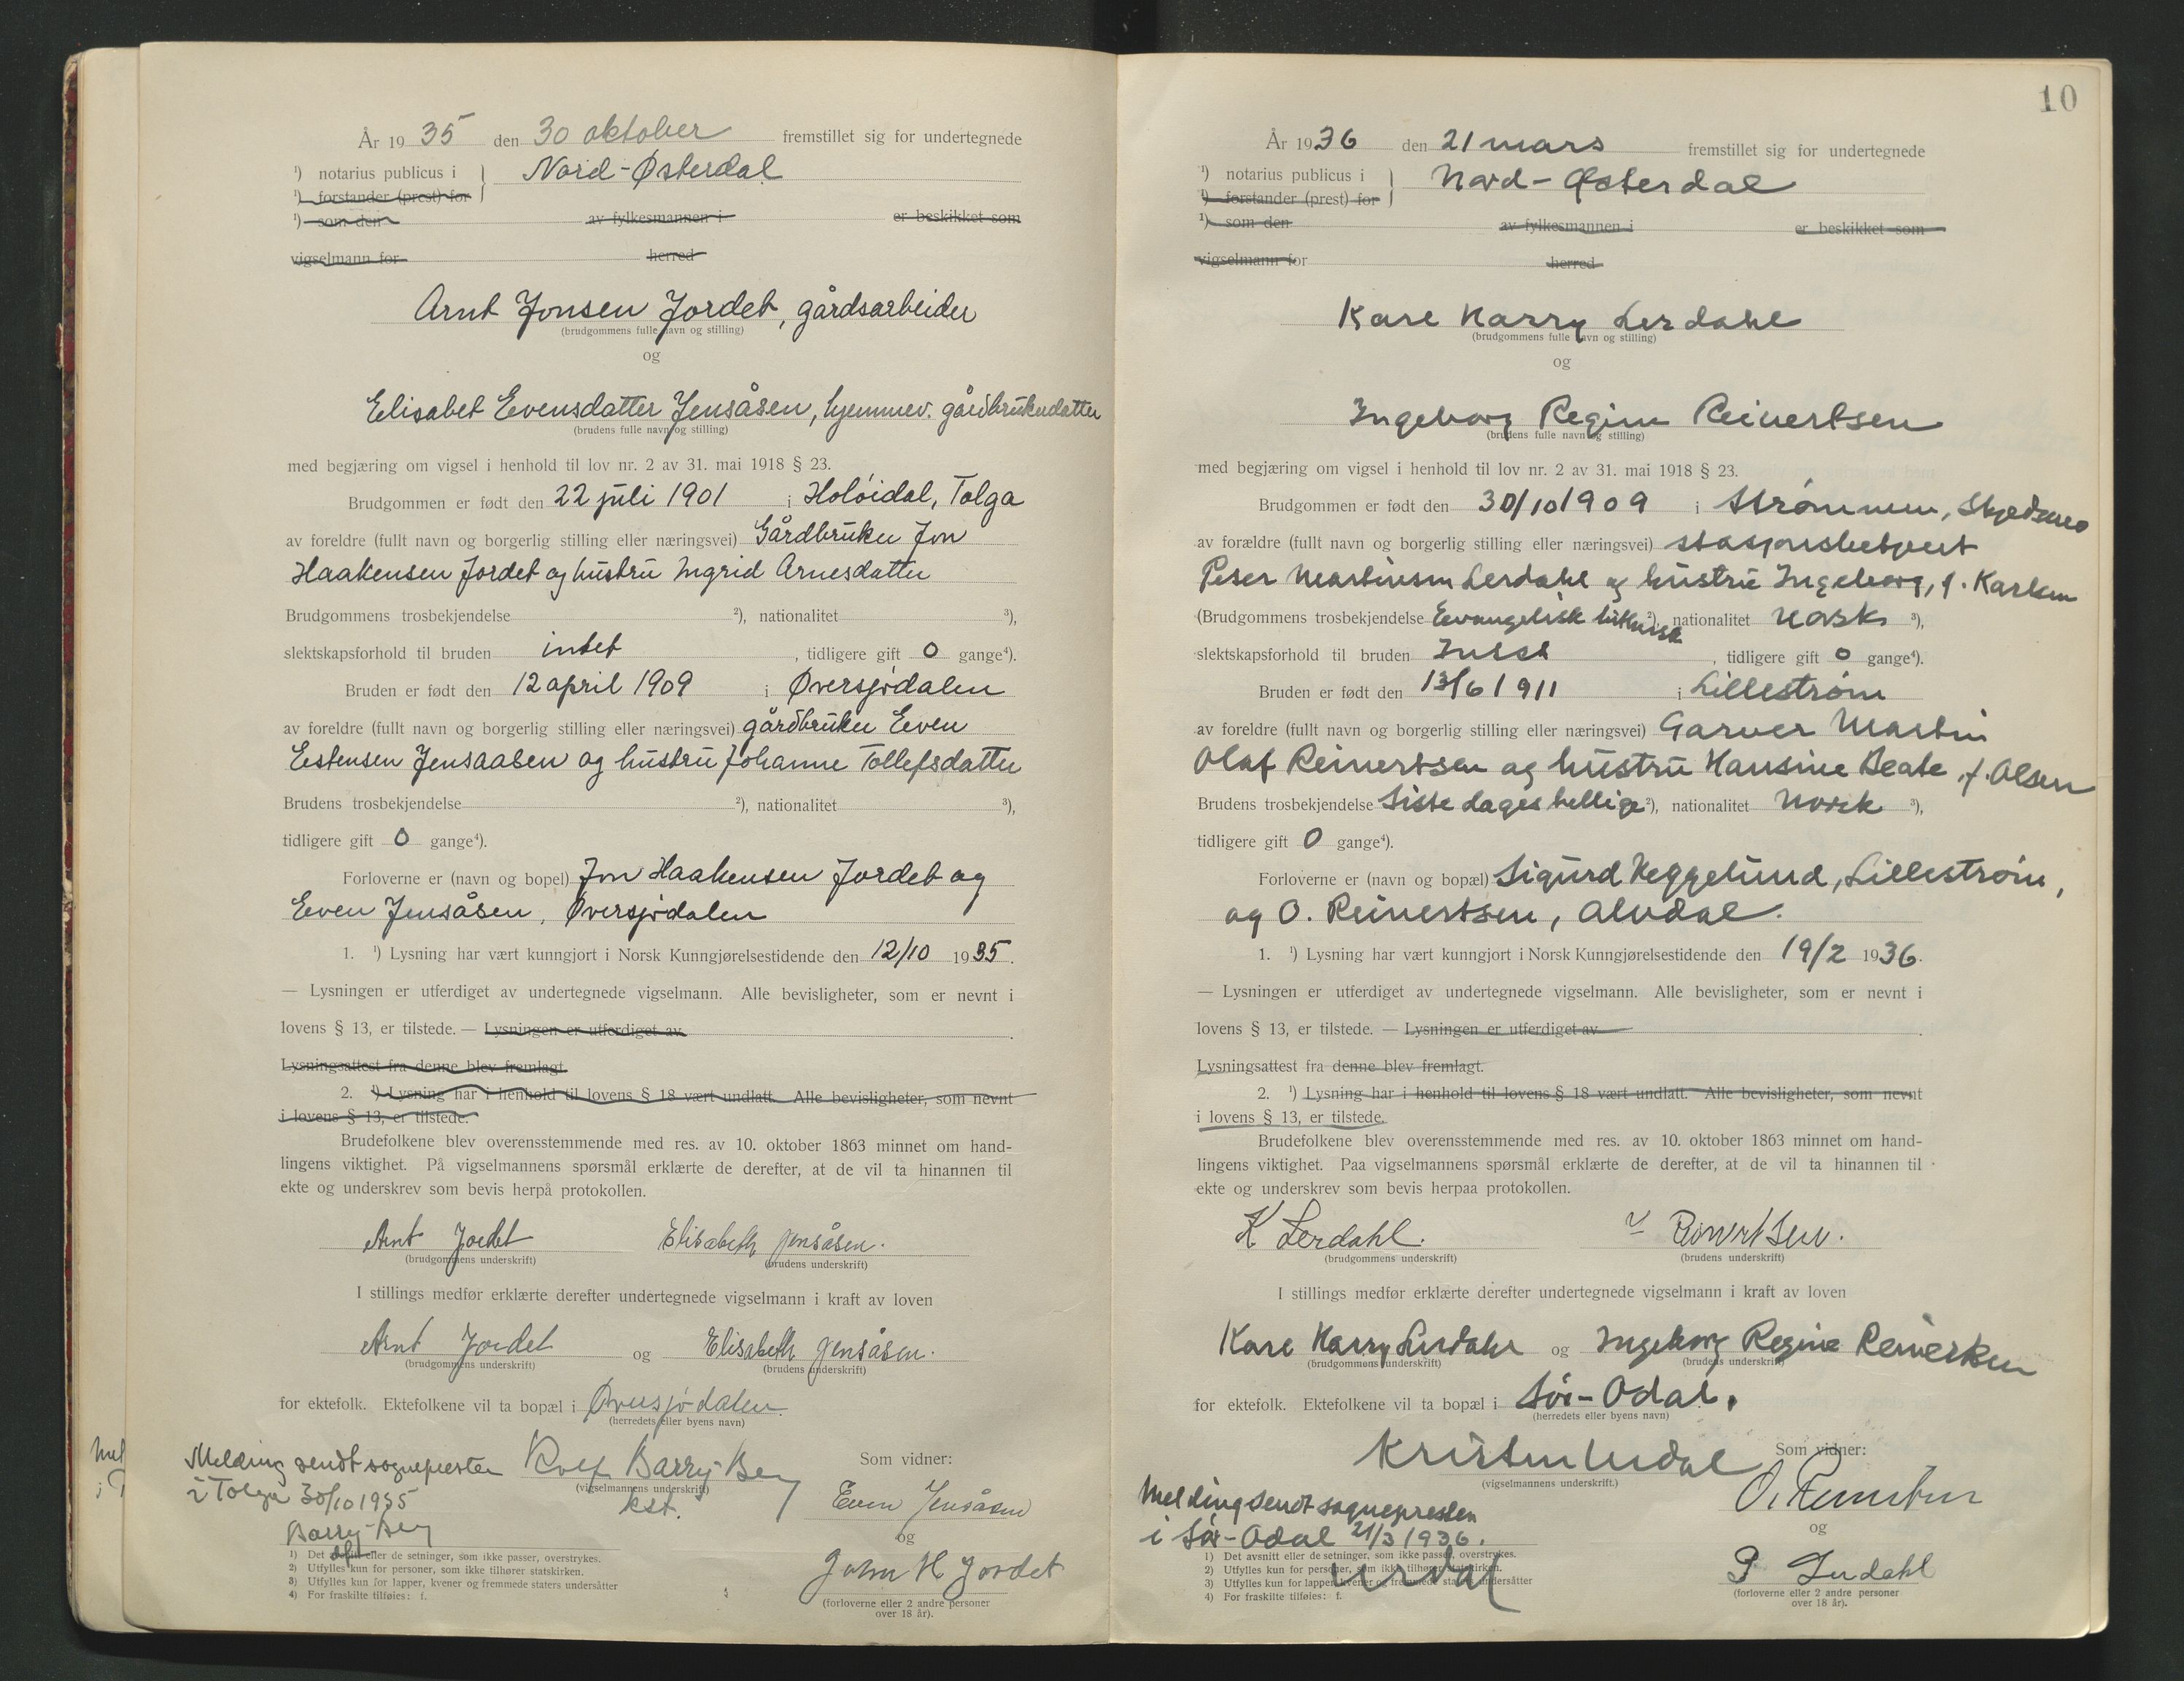 År 1935 den 30 oktober fremstillet sig for undertegnede
¹) notarius publicus i } Nord-Østerdal
¹) forstander (prest) for
¹) som den av fylkesmannen i er beskikket som
vigselmann for herred
Arnt Jonsen Jordet, gårdsarbeider
(brudgommens fulle navn og stilling)
og
Elisabet Evensdatter Jensåsen, hjemmev. gårdbrukerdatter
(brudens fulle navn og stilling)
med begjæring om vigsel i henhold til lov nr. 2 av 31. mai 1918 § 23.
Brudgommen er født den 22 juli 1901 i Holøidal, Tolga
av foreldre (fullt navn og borgerlig stilling eller næringsvei) Gårdbruker Jon
Haakensen Jordet og hustru Ingrid Arnesdatter
Brudgommens trosbekjendelse ²), nationalitet ³),
slektskapsforhold til bruden intet , tidligere gift 0 gange⁴).
Bruden er født den 12 april 1909 i Øversjødalen
av foreldre (fullt navn og borgerlig stilling eller næringsvei) gårdbruker Even
Estensen Jensaasen og hustru Johanne Tollefsdatter
Brudens trosbekjendelse ²), nationalitet ³),
tidligere gift 0 gange⁴).
Forloverne er (navn og bopel) Jon Haakensen Jordet og
Even Jensåsen, Øversjødalen
1. ¹) Lysning har vært kunngjort i Norsk Kunngjørelsestidende den 12/10 1935.
— Lysningen er utferdiget av undertegnede vigselmann. Alle bevisligheter, som er nevnt i
lovens § 13, er tilstede. — Lysningen er utferdiget av
Lysningsattest fra denne blev fremlagt.
2. ¹) Lysning har i henhold til lovens § 18 vært undlatt. Alle bevisligheter, som nevnt
i lovens § 13, er tilstede.
Brudefolkene blev overensstemmende med res. av 10. oktober 1863 minnet om hand-
lingens viktighet. På vigselmannens spørsmål erklærte de derefter, at de vil ta hinannen til
ekte og underskrev som bevis herpå protokollen.
Arnt Jordet Elisabeth Jensåsen.
(brudgommens underskrift) (brudens underskrift)
I stillings medfør erklærte derefter undertegnede vigselmann i kraft av loven
Arnt Jordet og Elisabeth Jensåsen.
(brudgommens underskrift) (brudens underskrift)
for ektefolk. Ektefolkene vil ta bopæl i Øversjødalen.
(herredets eller byens navn)
Melding sendt sognepresten
i Tolga 30/10 1935
Barry-Berg
Rolf Barry-Berg
(vigselmannens underskrift)
kst.
Som vidner:
Even Jensåsen
og
John H Jordet
(forloverne eller 2 andre personer
over 18 år).
1) Det avsnitt eller de setninger, som ikke passer, overstrykes.
2) Utfylles kun for personer, som ikke tilhører statskirken.
3) Utfylles kun for lapper, kvener og fremmede staters undersåtter
4) For fraskilte tilføies: f.
10
År 1936 den 21 mars fremstillet sig for undertegnede
¹) notarius publicus i } Nord-Østerdal
¹) forstander (prest) for
¹) som den av fylkesmannen i er beskikket som
vigselmann for herred
Kare Harry Lerdahl
(brudgommens fulle navn og stilling)
og
Ingeborg Regine Reinertsen
(brudens fulle navn og stilling)
med begjæring om vigsel i henhold til lov nr. 2 av 31. mai 1918 § 23.
Brudgommen er født den 30/10 1909 i Strømmen, Skjedsmo
av forældre (fullt navn og borgerlig stilling eller næringsvei) stasjonsbetjent
Peder Martinsen Lerdahl og hustru Ingeborg, f. Karlsen
(Brudgommens trosbekjendelse Evangelisk luthersk ²), nationalitet norsk ³),
slektskapsforhold til bruden Intet , tidligere gift 0 gange⁴).
Bruden er født den 13/6 1911 i Lillestrøm
av foreldre (fullt navn og borgerlig stilling eller næringsvei) Garver Martin
Olaf Reinertsen og hustru Hansine Beate f. Olsen
Brudens trosbekjendelse Siste dages hellige ²), nationalitet Norsk ³),
tidligere gift 0 gange⁴).
Forloverne er (navn og bopæl) Sigurd Heggelund, Lillestrøm,
og O. Reinertsen, Alvdal.
1. ¹) Lysning har vært kunngjort i Norsk Kunngjørelsestidende den 19/2 1936.
— Lysningen er utferdiget av undertegnede vigselmann. Alle bevisligheter, som er nevnt i
lovens § 13, er tilstede. — Lysningen er utferdiget av .
Lysningsattest fra denne blev fremlagt.
2. ¹) Lysning har i henhold til lovens § 18 vært undlatt. Alle bevisligheter, som nevnt
i lovens § 13, er tilstede.
Brudefolkene blev overensstemmende med res. av 10. oktober 1863 minnet om hand-
lingens viktighet. Paa vigselmannens spørsmål erklærte de derefter, at de vil ta hinannen til
ekte og underskrev som bevis herpaa protokollen.
K Lerdahl. Reinertsen.
(brudgommens underskrift) (brudens underskrift)
I stillings medfør erklærte derefter undertegnede vigselmann i kraft av loven
Kare Harry Lerdahl og Ingeborg Regine Reinertsen
(brudgommens underskrift) (brudens underskrift)
for ektefolk. Ektefolkene vil ta bopæl i Sør-Odal.
(herredets eller byens navn)
Kristen Urdal
(vigselmannens underskrift.)
Melding sendt sognepresten
i Sør-Odal 21/3 1936.
Urdal
Som vidner:
O. Reinertsen
og
P Lerdahl
(forloverne eller 2 andre personer
over 18 år).
1) Det avsnitt eller de setninger, som ikke passer, overstrykes.
2) Utfylles kun for personer, som ikke tilhører statskirken.
3) Utfylles kun for lapper, kvener og fremmede staters undersåtter
4) For fraskilte tilføies: f.